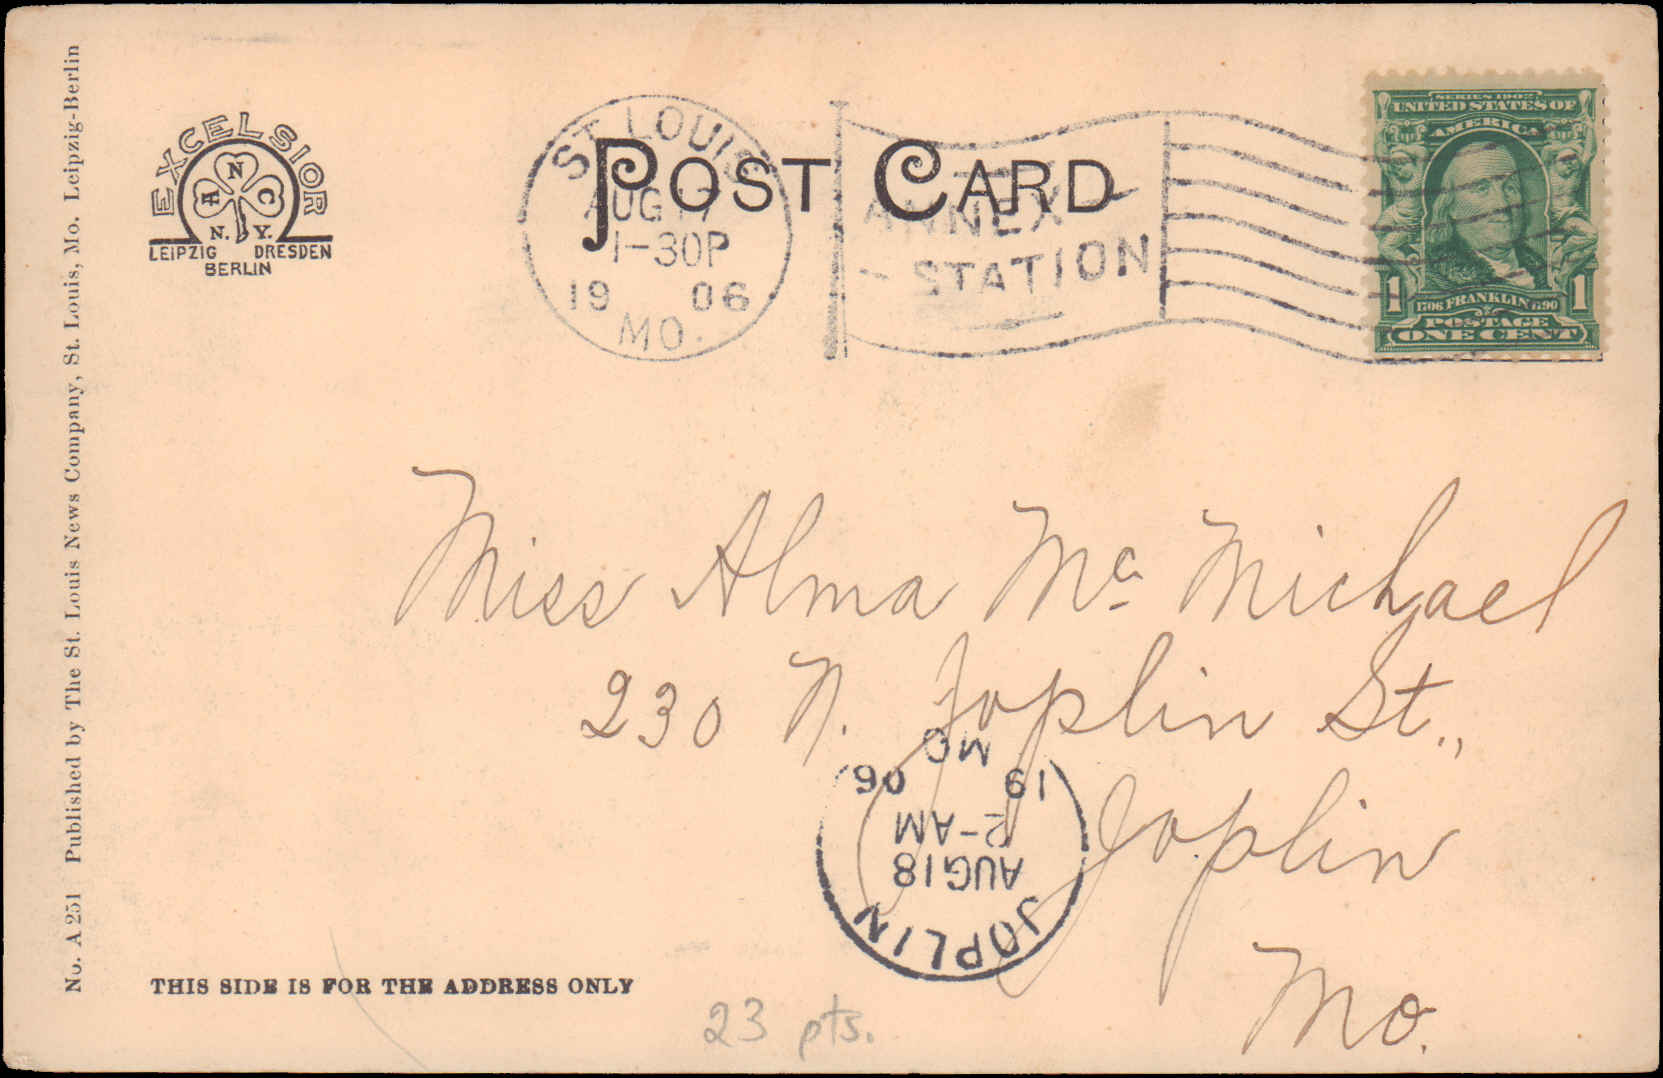 No. A 251 Published by The St. Louis News Company, St. Louis, Mo. Leipzig-Berlin
EXCELSIOR
A N C
N. Y.
LEIPZIG DRESDEN
BERLIN
POST CARD
ST. LOUIS
AUG 17
1-30P
19 06
MO.
ANNEX
STATION
SERIES 1902
UNITED STATES OF
AMERICA
1 1706 FRANKLIN 1790 1
POSTAGE
ONE CENT
Miss Alma Mc Michael
230 N. Joplin St.,
Joplin
Mo.
JOPLIN
AUG 18
2-AM
19 06
MO
THIS SIDE IS FOR THE ADDRESS ONLY
23 pts.